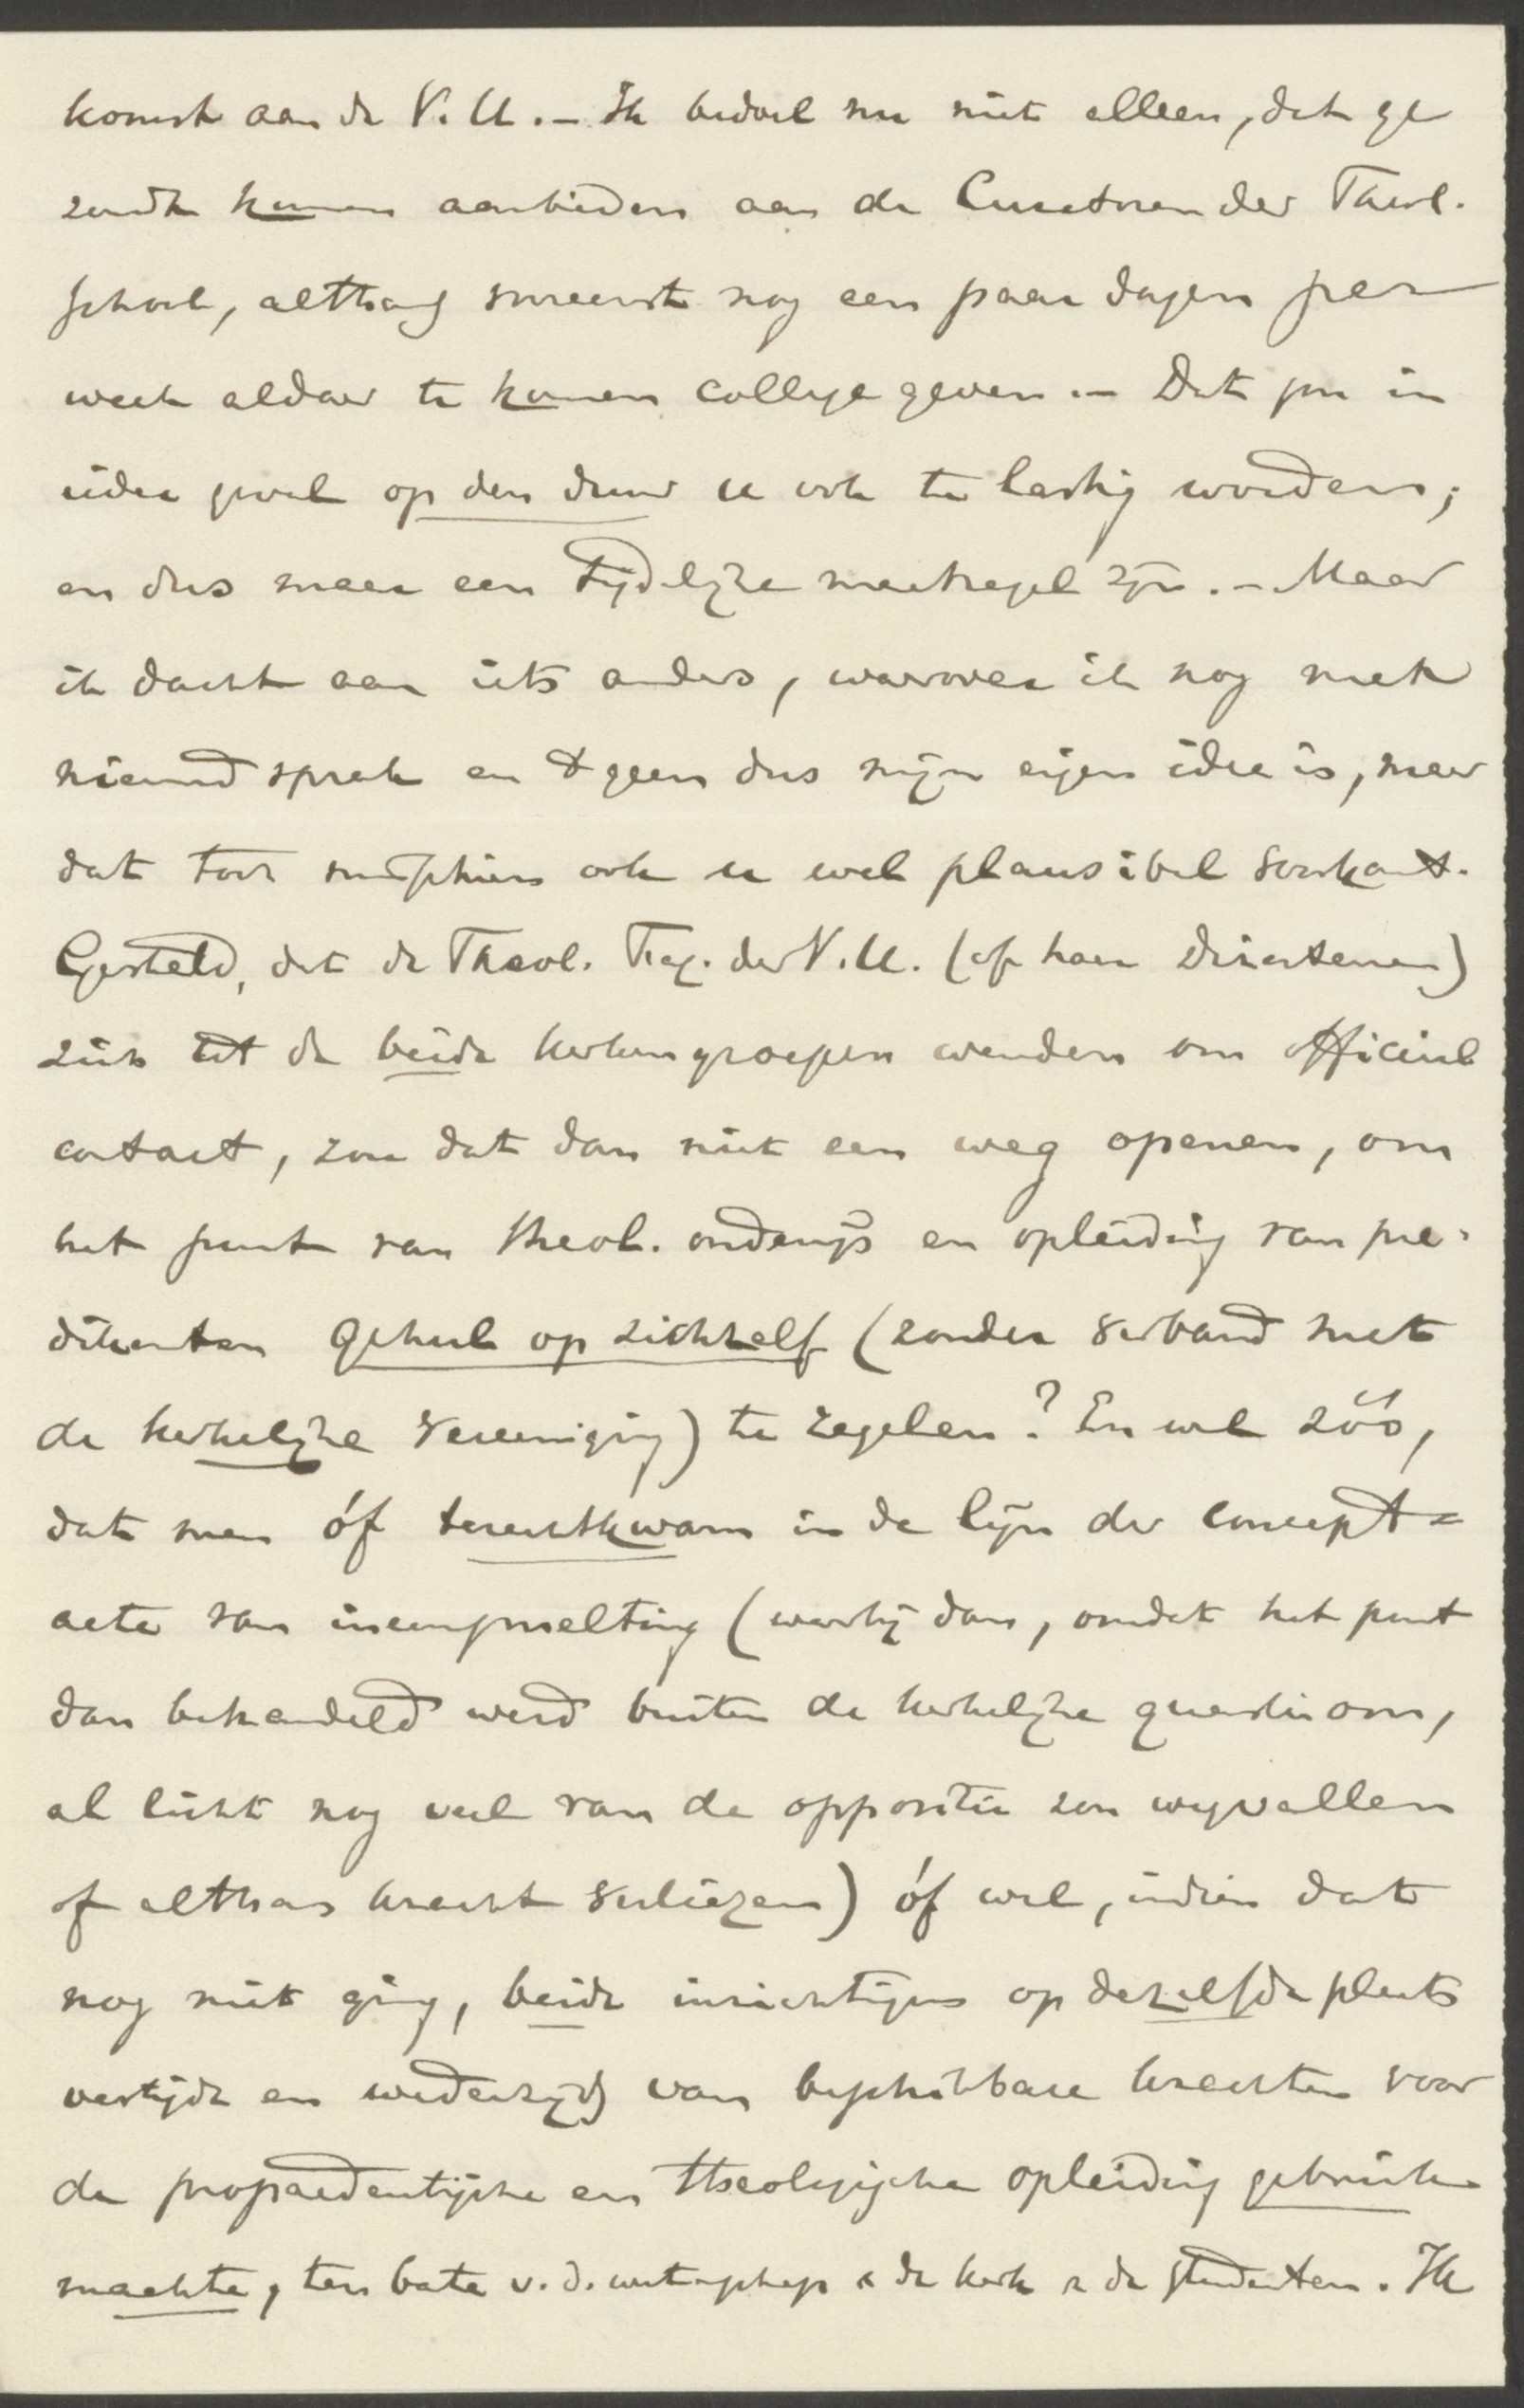 komst aan de V.U. – Ik bedoel nu niet alleen, dat ge
zoudt kunnen aanbieden aan de Curatoren der Theol.
School, althans vooreerst nog een paar dagen per
week aldaar te komen college geven. – Dat zou in
ieder geval op den duur u ook te lastig worden;
en dus maar een tijdelijke maatregel zijn. – Maar
ik dacht aan iets anders, waarover ik nog met
niemand sprak en 't geen dus mijn eigen idee is, maar
dat toch misschien ook u wel plausibel voorkomt.
Gesteld, dat de Theol. Fac. der V.U. (of haar Directeuren)
zich tot de beide kerkengroepen wenden om officieel
contact, zou dat dan niet een weg openen, om
het punt van theol. onderwijs en opleiding van pre-
dikanten geheel op zichzelf (zonder verband met
de kerkelijke vereeniging) te regelen? En wel zóó,
dat men óf terechtkwam in de lijn der concept=
acte van ineensmelting (waarbij dan, omdat het punt
dan behandeld werd buiten de kerkelijke quaestie om,
al licht nog veel van de oppositie zou wegvallen
of althans kracht verliezen) óf wel, indien dat
nog niet ging, beide inrichtingen op dezelfde plaats
vestigde en wederzijds van beschikbare krachten voor
de propaedeutische en theologische opleiding gebruik
maakte, ten bate v.d. wetenschap & de kerk & de studenten. Ik